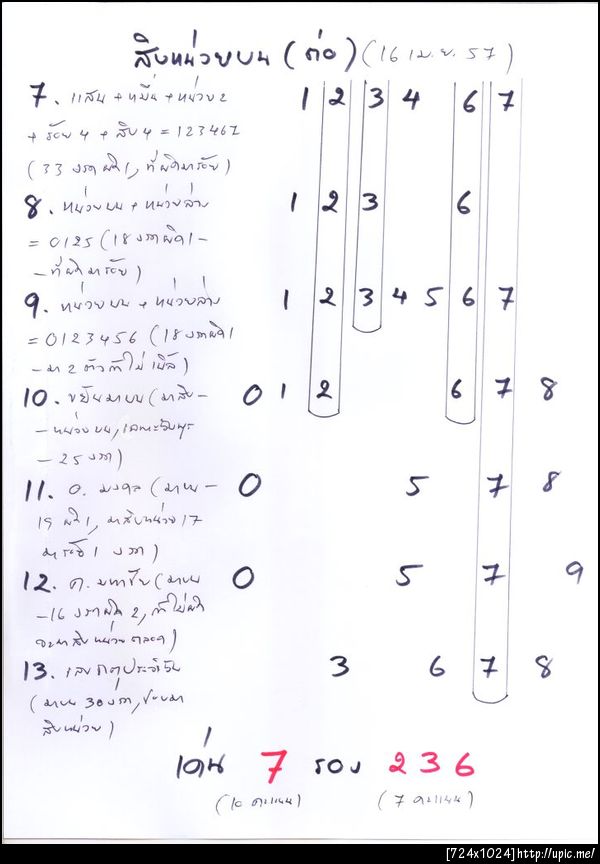 สิบหน่วยบน (ต่อ) (16 เม.ย. 57)
7. แสน + หมื่น + หน่วย 2 1 2 3 4 6 7
+ ร้อย 4 + สิบ 4 = 123467
(33 งวดผิด 1, ที่ผิดมาร้อย)
8. หน่วยบน + หน่วยล่าง 1 2 3 6
= 0125 (18 งวดผิด 1 -
- ที่ผิดมาร้อย)
9. หน่วยบน + หน่วยล่าง 1 2 3 4 5 6 7
= 0123456 (18 งวดผิด 1
- มา 2 ตัวถ้าไม่เบิ้ล)
10. ขยันมาบน (มาสิบ - 0 1 2 6 7 8
- หน่วยบน,
- 25 งวด)
11. อ. มงคล (มาบน - 0 5 7 8
19 ผิด 1, มาสิบหน่วย 17
1 งวด)
12. ค. มหาชัย (มาบน 0 5 7 9
- 16 งวดผิด 2, ถ้าไม่ผิด
จะมาสิบหน่วยตลอด)
13. เลขธาตุประจำวัน 3 6 7 8
(มาบน 30 งวด, ชอบมา
สิบหน่วย)
เด่น 7 รอง 2 3 6
(10 คะแนน) (7 คะแนน)
[724x1024]http://upic.me/